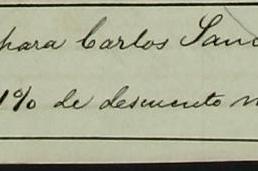 para Carlos San
1% de descuento